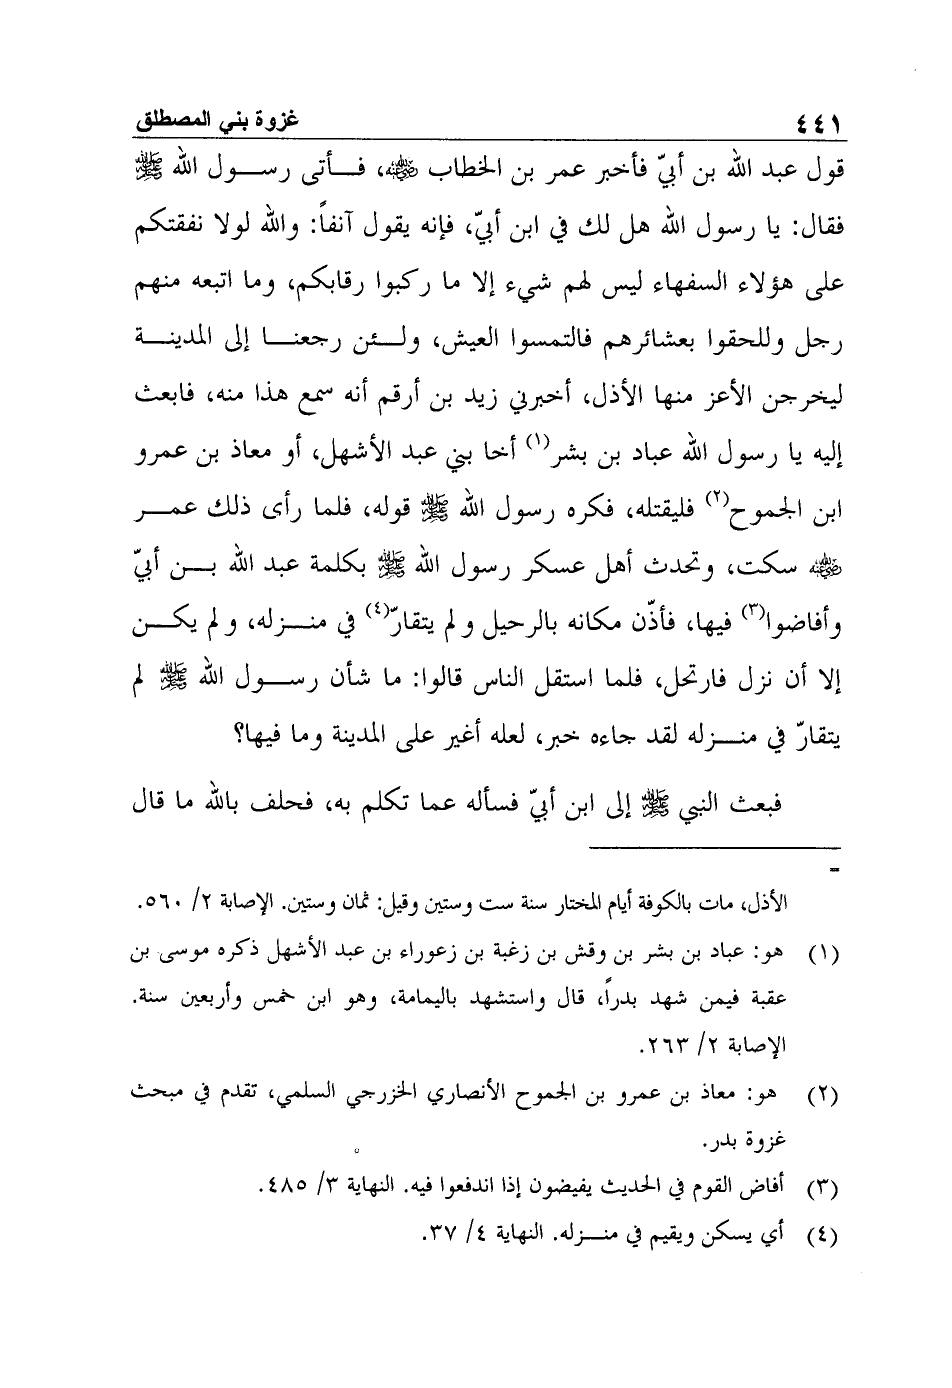 ٤٤١ غزوة بني المصطلق
قول عبد الله بن أبيّ فأخبر عمر بن الخطاب ﵁، فـأتى رسـول الله ﷺ
فقال: يا رسول الله هل لك في ابن أبيّ، فإنه يقول آنفاً: والله لولا نفقتكم
على هؤلاء السفهاء ليس لهم شيء إلا ما ركبوا رقابكم، وما اتبعه منهم
رجل وللحقوا بعشائرهم فالتمسوا العيش، ولـئن رجعنـا إلى المدينـة
ليخرجن الأعز منها الأذل، أخبرني زيد بن أرقم أنه سمع هذا منه، فابعث
إليه يا رسول الله عباد بن بشر(١) أخا بني عبد الأشهل، أو معاذ بن عمرو
ابن الجموح(٢) فليقتله، فكره رسول الله ﷺ قوله، فلما رأى ذلك عمـر
﵁ سكت، وتحدث أهل عسكر رسول الله ﷺ بكلمة عبد الله بـن أبيّ
وأفاضوا(٣) فيها، فأذّن مكانه بالرحيل ولم يتقارّ(٤) في منـزله، ولم يكـن
إلا أن نزل فارتحل، فلما استقل الناس قالوا: ما شأن رسـول الله ﷺ لم
يتقارّ في منـزله لقد جاءه خبر، لعله أغير على المدينة وما فيها؟
فبعث النبي ﷺ إلى ابن أبيّ فسأله عما تكلم به، فحلف بالله ما قال
=
الأذل، مات بالكوفة أيام المختار سنة ست وستين وقيل: ثمان وستين. الإصابة ٢/ ٥٦٠.
(١) هو: عباد بن بشر بن وقش بن زغبة بن زعوراء بن عبد الأشهل ذكره موسى بن
عقبة فيمن شهد بدراً، قال واستشهد باليمامة، وهو ابن خمس وأربعين سنة.
الإصابة ٢/ ٢٦٣.
(٢) هو: معاذ بن عمرو بن الجموح الأنصاري الخزرجي السلمي، تقدم في مبحث
غزوة بدر.
(٣) أفاض القوم في الحديث يفيضون إذا اندفعوا فيه. النهاية ٣/ ٤٨٥.
(٤) أي يسكن ويقيم في منـزله. النهاية ٤/ ٣٧.